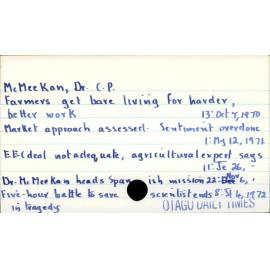 McMeekan, Dr. C.P.
Farmers get bare living for harder,
better work 13: Oct 7, 1970
Market approach assessed. Sentiment overdone
1: My 12, 1971
EEC deal not adequate, agricultural expert says
11: Je 26, -
Dr. McMeekan heads Span ish mission 22: Nov 6, -
Five-hour battle to save scientist ends 8: Jl 6, 1972
in tragedy OTAGO DAILY TIMES